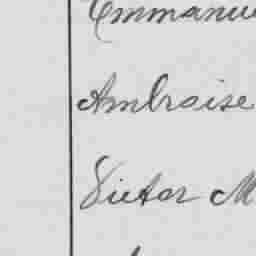 Emmanue
Ambroise
Victor M